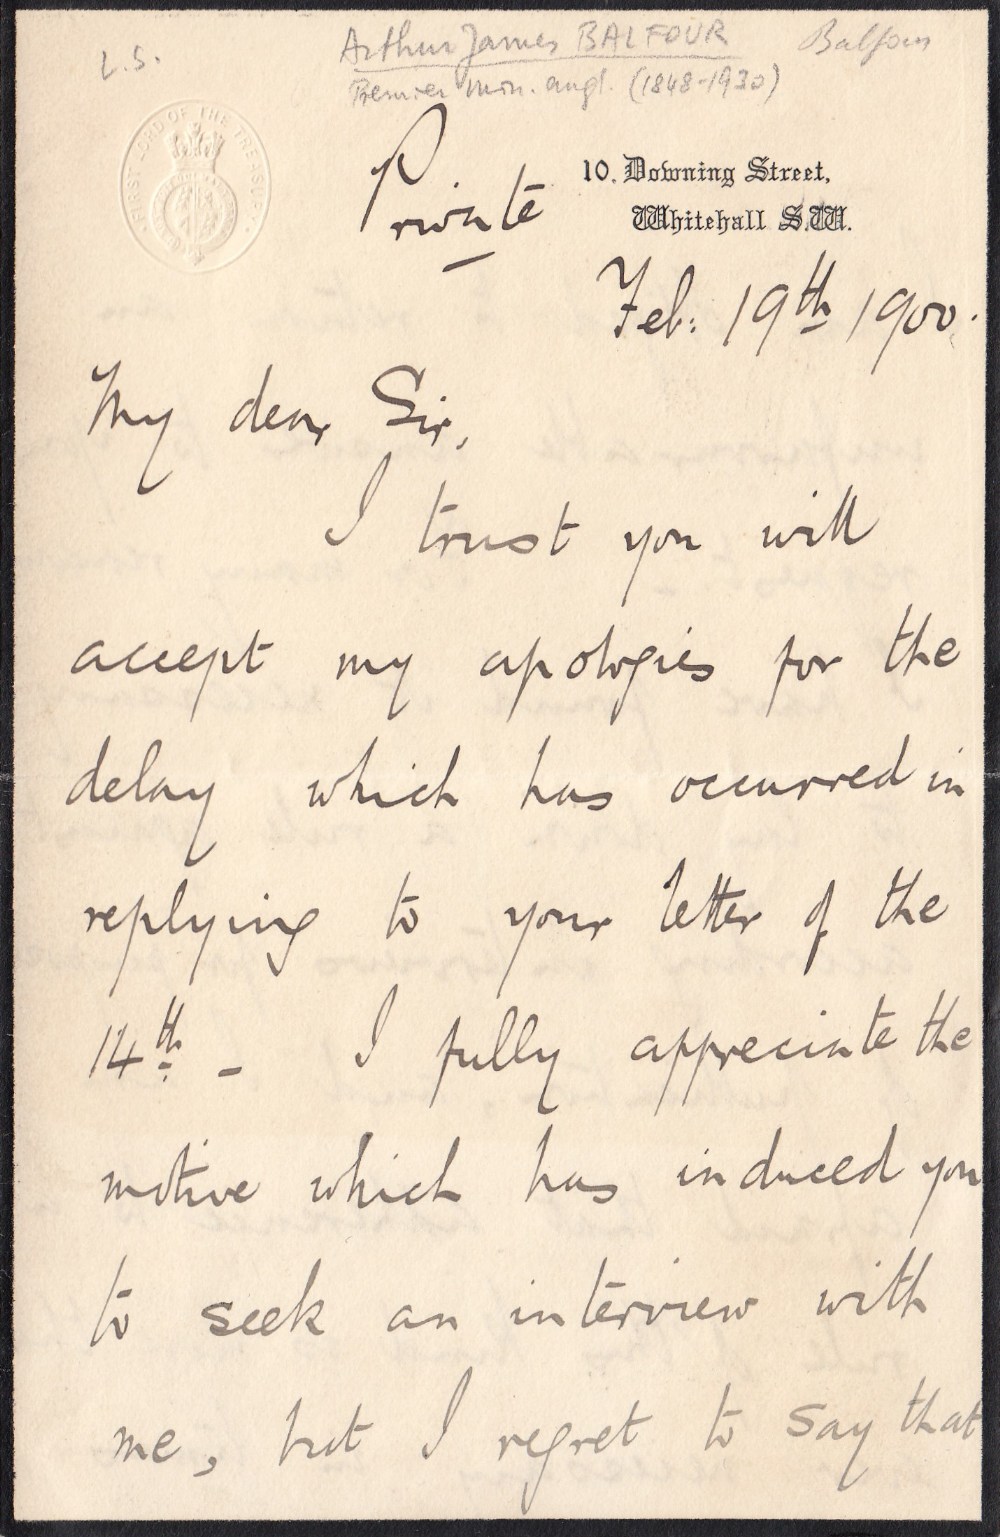 L.S.
Arthur James BALFOUR
Balfour
Premier Min. angl. (1848-1930)
FIRST LORD OF THE TREASURY
Private
10. Downing Street,
Whitehall S.W.
Feb: 19th 1900.
My dear Sir,
I trust you will
accept my apologies for the
delay which has occurred in
replying to your letter of the
14th - I fully appreciate the
motive which has induced you
to seek an interview with
me, but I regret to say that